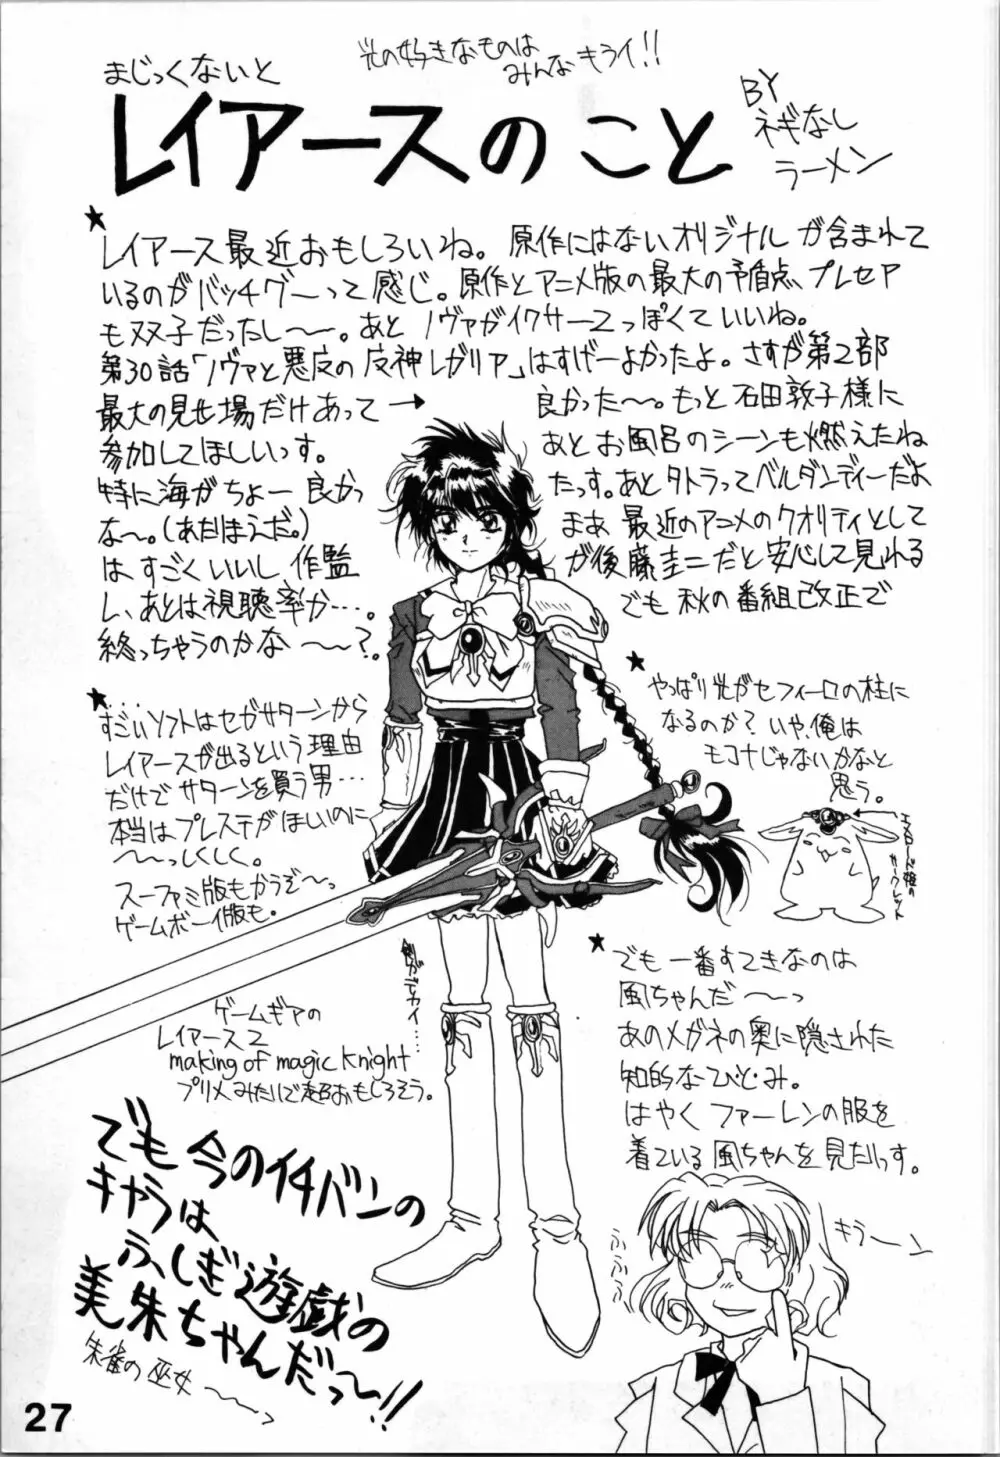 光の好きなものは
みんなキライ!!
まじっくないと
レイアースのこと
BY
ネギなし
ラーメン
★
レイアース最近おもしろいね。原作にはないオリジナルが含まれて
いるのがバッチグーって感じ。原作とアニメ版の最大の矛盾点、プレセア
も双子だったし〜〜。あとノヴァがイクサー2っぽくていいね。
第30話「ノヴァと悪夢の魔神レガリア」はすげーよかったよ。さすが第2部
最大の見せ場だけあって→
良かった〜〜。もっと石田敦子様に
参加してほしいっす。
あとお風呂のシーンも燃えたね
特に海がちょー良かっ
たっす。あとタトラってベルダンディーだよ
な〜。(あたりまえだ。)
まあ最近のアニメのクオリティとして
はすごくいいし作監
が後藤圭二だと安心して見れる
し、あとは視聴率か…。
でも秋の番組改正で
終っちゃうのかな〜〜?。
★
すごいソフトはセガサターンから
レイアースが出るという理由
だけでサターンを買う男…
本当はプレステがほしいのに
〜〜っしくしく。
スーファミ版もかうぞ〜っ
ゲームボーイ版も。
★
やっぱり光がセフィーロの柱に
なるのか?いや、俺は
モコナじゃないかなと
思う。
エメロード姫の
サークレット
剣がデカイ…
ゲームギアの
レイアース2
making of magic knight
プリメみたいで超おもしろそう。
★
でも一番すてきなのは
風ちゃんだ〜〜っ
あのメガネの奥に隠された
知的なひとみ。
はやくファーレンの服を
着ている風ちゃんを見たいっす。
キラーン
ふふふ
でも今のイチバンの
キャラは
ふしぎ遊戯の
美朱ちゃんだっ〜!!
朱雀の巫女〜〜っ
27